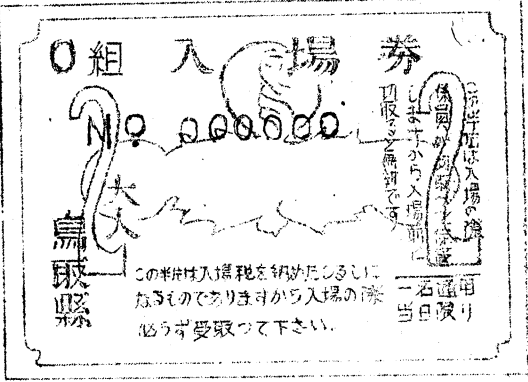 0組入場券
No 000000
この半片は入場の際
係員が切取って保管
しますから入場前に
切取ると無効です
大人
鳥取縣
この半片は入場税を納めたしるしに
なるものでありますから入場の際
必らず受取って下さい.
一名通用
当日限り